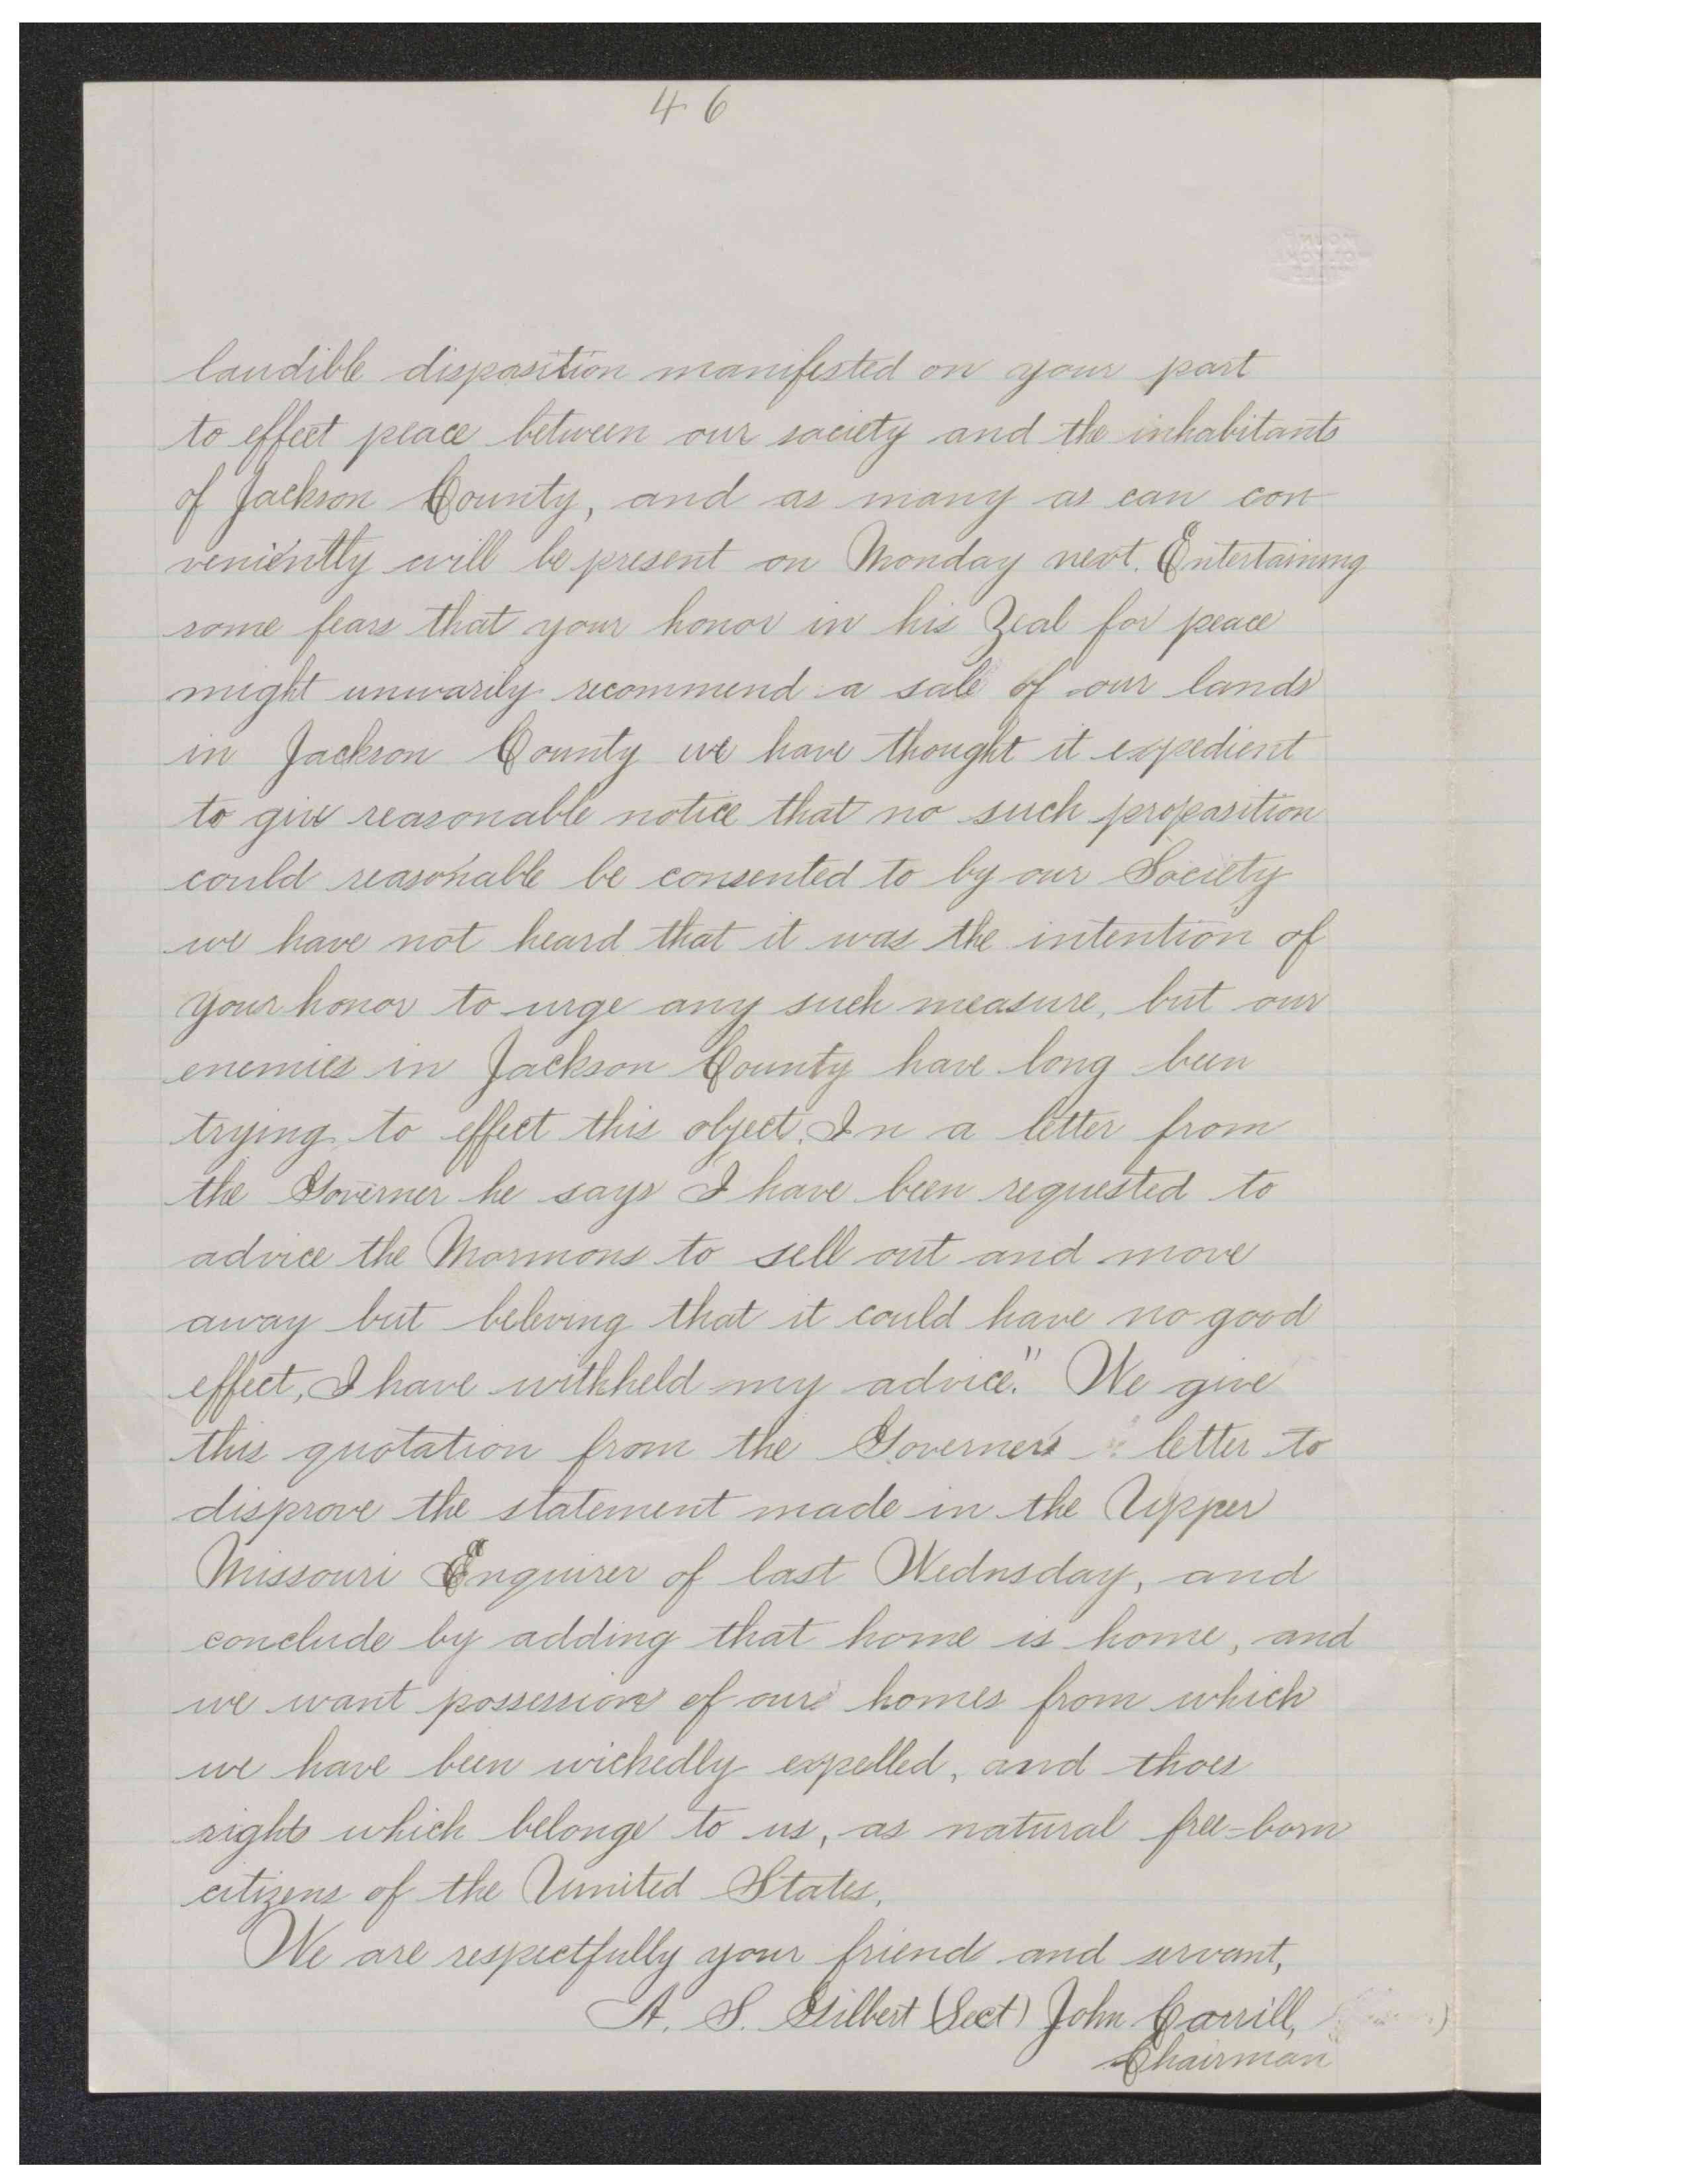 46
laudible disposition manifested on your part
to effect peace between our society and the inhabitants
of Jackson County, and as many as can con
veniently will be present on Monday next. Entertaining
some fears that your honor in his Zeal for peace
might unwarily recommend a sale of our lands
in Jackson County we have thought it expedient
to give reasonable notice that no such proposition
could reasonable be consented to by our Society
we have not heard that it was the intention of
your honor to urge any such measure, but our
enemies in Jackson County have long been
trying to effect this object. In a letter from
the Governer he says I have been requested to
advice the Mormons to sell out and move
away but beleving that it could have no good
effect, I have withheld my advice." We give
this quotation from the Governers letter to
disprove the statement made in the Upper
Missouri Enquirer of last Wednsday, and
conclude by adding that home is home, and
we want possession of ours homes from which
we have been wickedly expelled, and thoes
rights which belonge to us, as natural free-born
citizens of the United States.
We are respectfully your friend and servant,
A. S. Gilbert (Sect) John Carrill,
Chairman